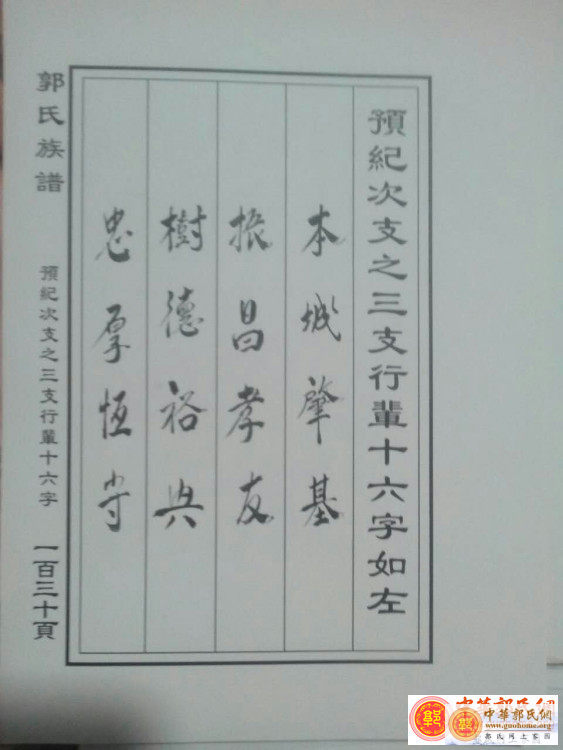 預紀次支之三支行輩十六字如左
本城肇基
振昌孝友
樹德裕興
忠厚恆守
郭氏族譜
預紀次支之三支行輩十六字
一百三十頁
中華郭氏網
中華郭氏網
www.guohome.com
郭氏网上家园